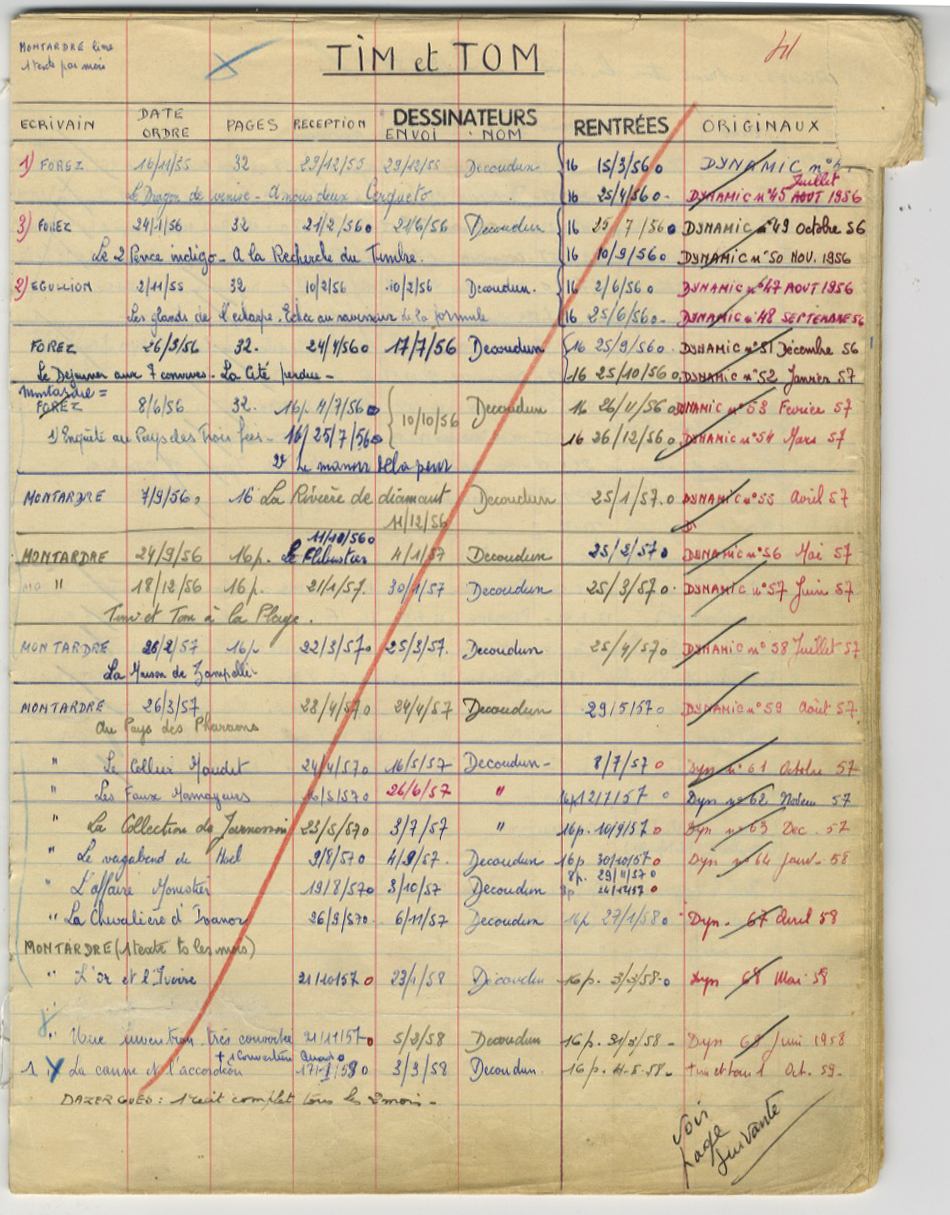 MONTARDRE
1 texte par mois
TIM et TOM
ECRIVAIN DATE ORDRE PAGES RECEPTION DESSINATEURS ENVOI NOM RENTRÉES ORIGINAUX
1) FOREZ 16/11/55 32 29/12/55 29/12/55 Decoudun 16 15/3/56 DYNAMIC n°
Le Dragon de venise - 16 25/4/56 DYNAMIC n°45 Juillet AOUT 1956
3) FOREZ 24/1/56 32 21/2/56 21/6/56 Decoudun 16 25/7/56 DYNAMIC n°49 Octobre 56
Le 2 Pence indigo - A la Recherche du Timbre. 16 10/9/56 DYNAMIC n°50 NOV. 1956
2) EGULLION 2/11/55 32 10/2/56 10/2/56 Decoudun. 16 2/6/56 DYNAMIC n°47 AOUT 1956
Les glands de l'écharpe. de la formule 16 25/6/56 DYNAMIC n°48 SEPTEMBRE 56
FOREZ 26/3/56 32. 24/4/56 17/7/56 Decoudun 16 25/9/56 DYNAMIC n°51 Décembre 56
Le Déjeuner aux 7 convives - La Cité perdue - 16 25/10/56 DYNAMIC n°52 Janvier 57
Montardre =
FOREZ 8/6/56 32. 16p. 4/7/56 10/10/56 Decoudun 16 26/11/56 DYNAMIC n°53 Fevrier 57
1) Enquête au Pays des Trois fées - 16p 25/7/56 16 26/12/56 DYNAMIC n°54 Mars 57
2) Le manoir de la peur
MONTARDRE 7/9/56 16 La Rivière de diamant 11/12/56 Decoudun 25/1/57 DYNAMIC n°55 Avril 57
11/10/56
MONTARDRE 24/9/56 16p. Le Flibustier 4/1/57 Decoudun 25/2/57 DYNAMIC n°56 Mai 57
" 18/12/56 16p. 21/1/57. 30/1/57 Decoudun 25/3/57 DYNAMIC n°57 Juin 57
Tim et Tom à la Plage.
MONTARDRE 26/2/57 16p 22/3/57 25/3/57. Decoudun 25/4/57 DYNAMIC n°58 Juillet 57
La Maison de
MONTARDRE 26/3/57 28/4/57 24/4/57 Decoudun 29/5/57 DYNAMIC n°59 Août 57
Au Pays des Pharaons
" Le Collier Maudit 24/4/57 16/5/57 Decoudun - 8/7/57 Dyn n°61 Octobre 57
" Les Faux 26/6/57 " 16p Dyn n°62 57
" La Collection de 23/5/57 3/7/57 " 16p. 10/9/57 Dyn n°63 Dec. 57
" Le vagabond de Noel 9/8/57 4/9/57. Decoudun 16p 30/10/57 Dyn n°64 Janv. 58
" L'affaire Monestier 19/8/57 3/10/57 Decoudun 8p. 29/11/57
" La Chevalière d' 26/9/57 6/11/57 Decoudun 16p 27/1/58 Dyn. 67 Avril 58
MONTARDRE (1 texte ts les mois)
" L'or et l'Ivoire 21/10/57 23/1/58 Decoudun 16p. 3/3/58 Dyn 68 Mai 58
" Une invention très convoitée 21/11/57 5/2/58 Decoudun 16p. 31/3/58 - Dyn Juin 1958
+ 1 Couverture
1 " La canne et l'accordéon 3/3/58 Decoudun. 16p. 4-5-58 - Tim et tom 1 Oct. 59 -
DAZERGUES : 1 récit complet tous les 2 mois -
voir
page
suivante